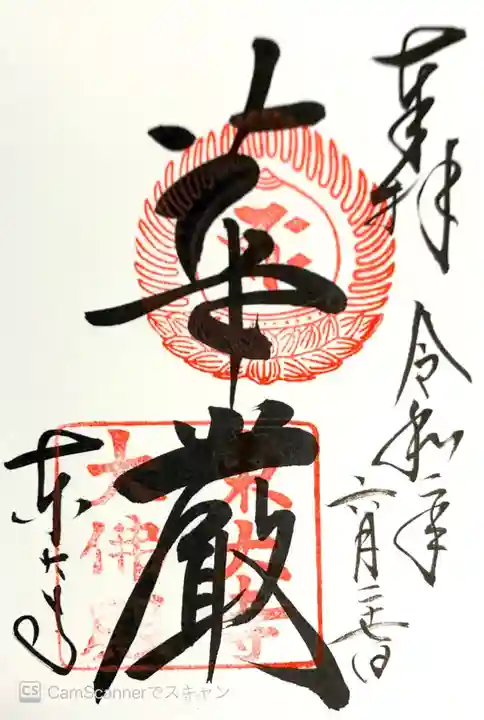 奉拝
令和二年
六月二十七日
華厳
東大寺
大佛殿
東大寺
CS CamScannerでスキャン